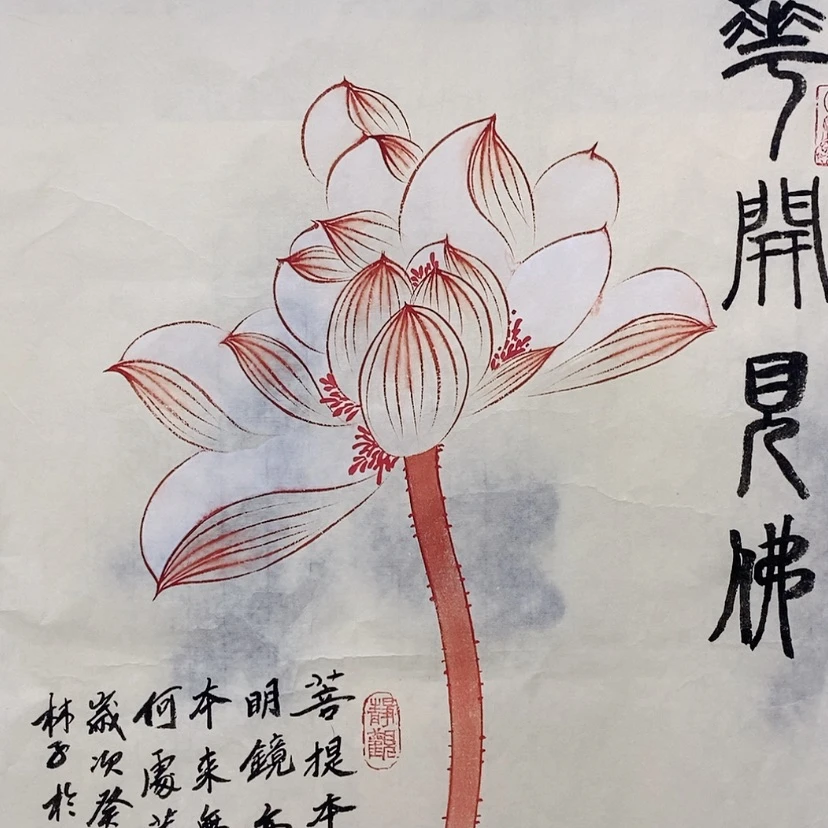 華開見佛
靜觀
菩提本
明鏡亦
本來無
何處
歲次癸
林子於